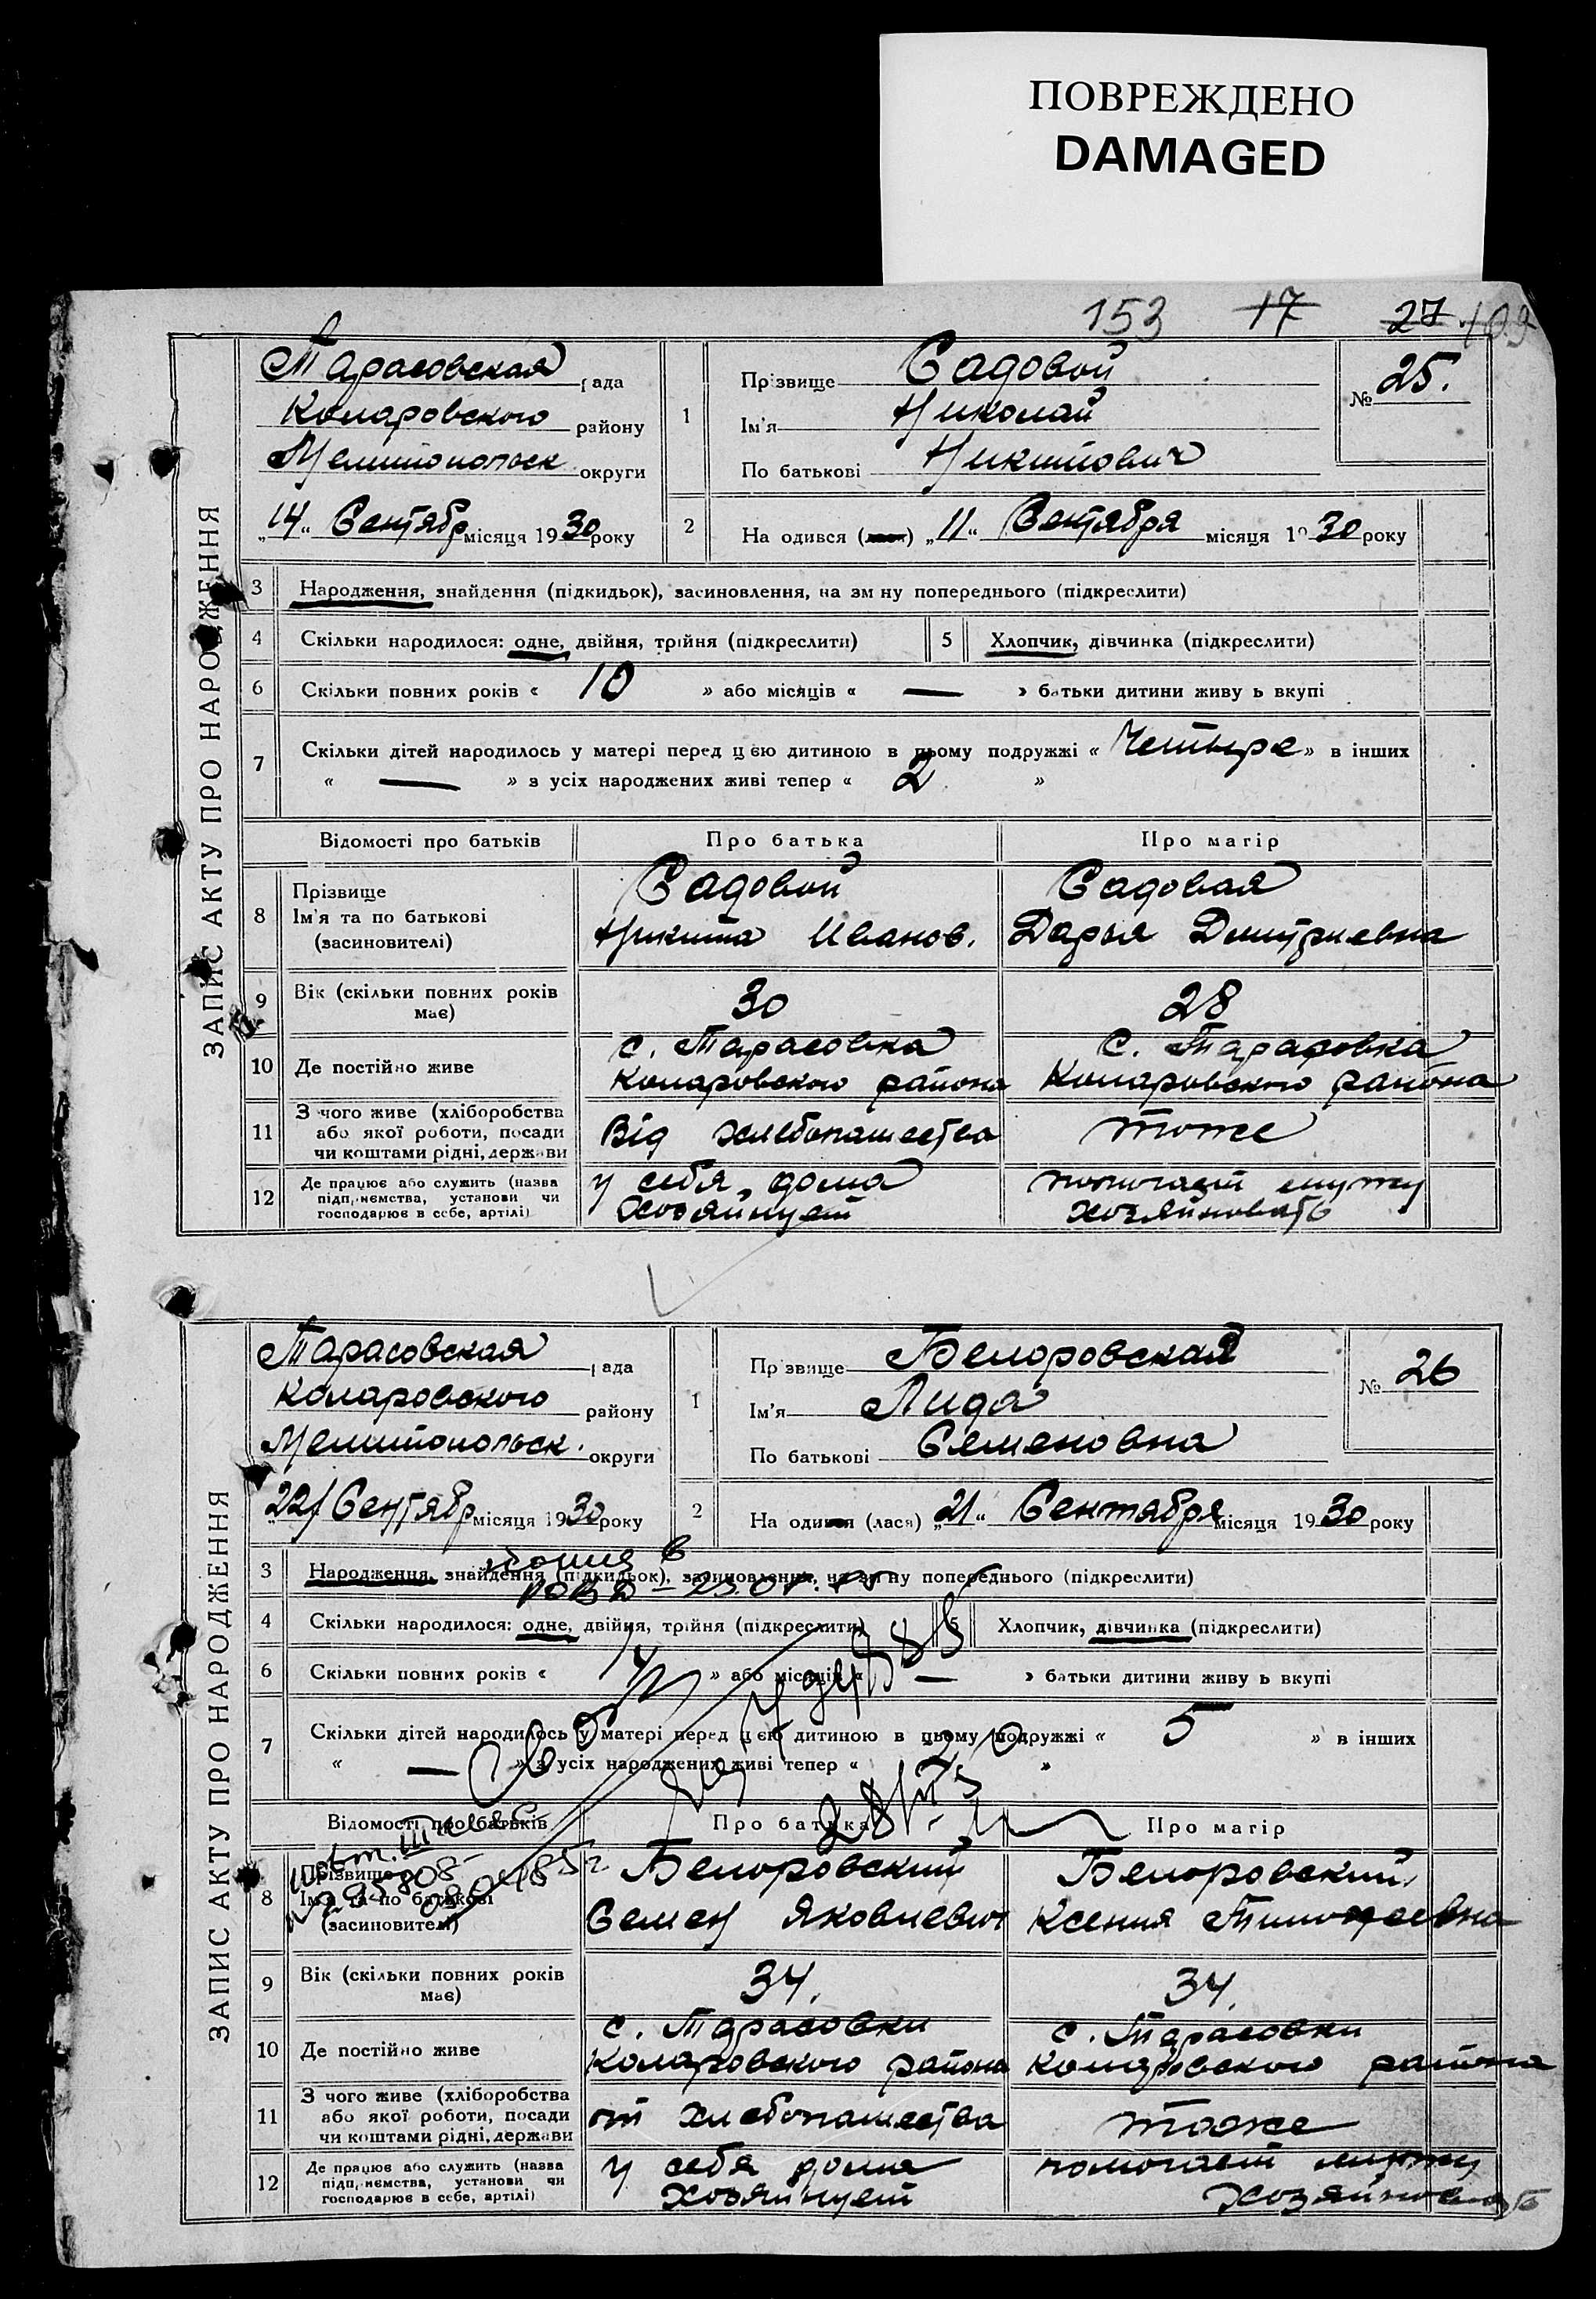 ПОВРЕЖДЕНО
DAMAGED
153 17 27
ЗАПИС АКТУ ПРО НАРОДЖЕННЯ
Тарасовская рада
Коларовского району
Мелитопольск округи
„14“ Сентябр місяця 1930 року
1
Прізвище Садовой
Ім'я Николай
По батькові Никитович
№ 25.
2 На одився (лася) „11“ Сентября місяця 1930 року
3 Народження, знайдення (підкидьок), засиновлення, на зм ну попереднього (підкреслити)
4 Скільки народилося: одне, двійня, трійня (підкреслити) 5 Хлопчик, дівчинка (підкреслити)
6 Скільки повних років « 10 » або місяців « — » батьки дитини живу ь вкупі
7 Скільки дітей народилось у матері перед ц ею дитиною в цьому подружжі « Четыре » в інших
« — » з усіх народжених живі тепер « 2 »
Відомості про батьків Про батька Про матір
8 Прізвище
Ім'я та по батькові
(засиновителі)
Садовой
Никита Иванов.
Садовая
Дарья Дмитриевна
9 Вік (скільки повних років має) 30 28
10 Де постійно живе
с. Тарасовка
Коларовского района
С. Тарасовка
Коларовского района
11 З чого живе (хліборобства
або якої роботи, посади
чи коштами рідні, держави
Від хлебопашества
тоже
12 Де працює або служить (назва
підпр.иємства, установи чи
господарює в себе, артілі)
у себя дома
Хозяйнует
помогает мужу
хозяйновать
ЗАПИС АКТУ ПРО НАРОДЖЕННЯ
Тарасовская рада
Коларовского району
Мелитопольск. округи
„22“ Сентябр місяця 1930 року
1
Прізвище Белоровская
Ім'я Лида
По батькові Семеновна
№ 26
2 На одився (лася) „21“ Сентября місяця 1930 року
копия в
РОВД
3 Народження, знайдення (підкидьок), засиновлення, на зм ну попереднього (підкреслити)
4 Скільки народилося: одне, двійня, трійня (підкреслити) 5 Хлопчик, дівчинка (підкреслити)
6 Скільки повних років « » або місяців « — » батьки дитини живу ь вкупі
7 Скільки дітей народилось у матері перед ц ею дитиною в цьому подружжі « 5 » в інших
« — » з усіх народжених живі тепер « »
Відомості про батьків Про батька Про матір
8 Прізвище
Ім'я та по батькові
(засиновителі)
Белоровский
Семен Яковлевич
Белоровский
Ксения Тимофеевна
9 Вік (скільки повних років має) 34. 34.
10 Де постійно живе
с. Тарасовки
Коларовского района
с. Тарасовки
Коларовского района
11 З чого живе (хліборобства
або якої роботи, посади
чи коштами рідні, держави
от хлебопашества
тоже
12 Де працює або служить (назва
підпр.иємства, установи чи
господарює в себе, артілі)
у себя дома
Хозяйнует
помогает мужу
хозяйновать